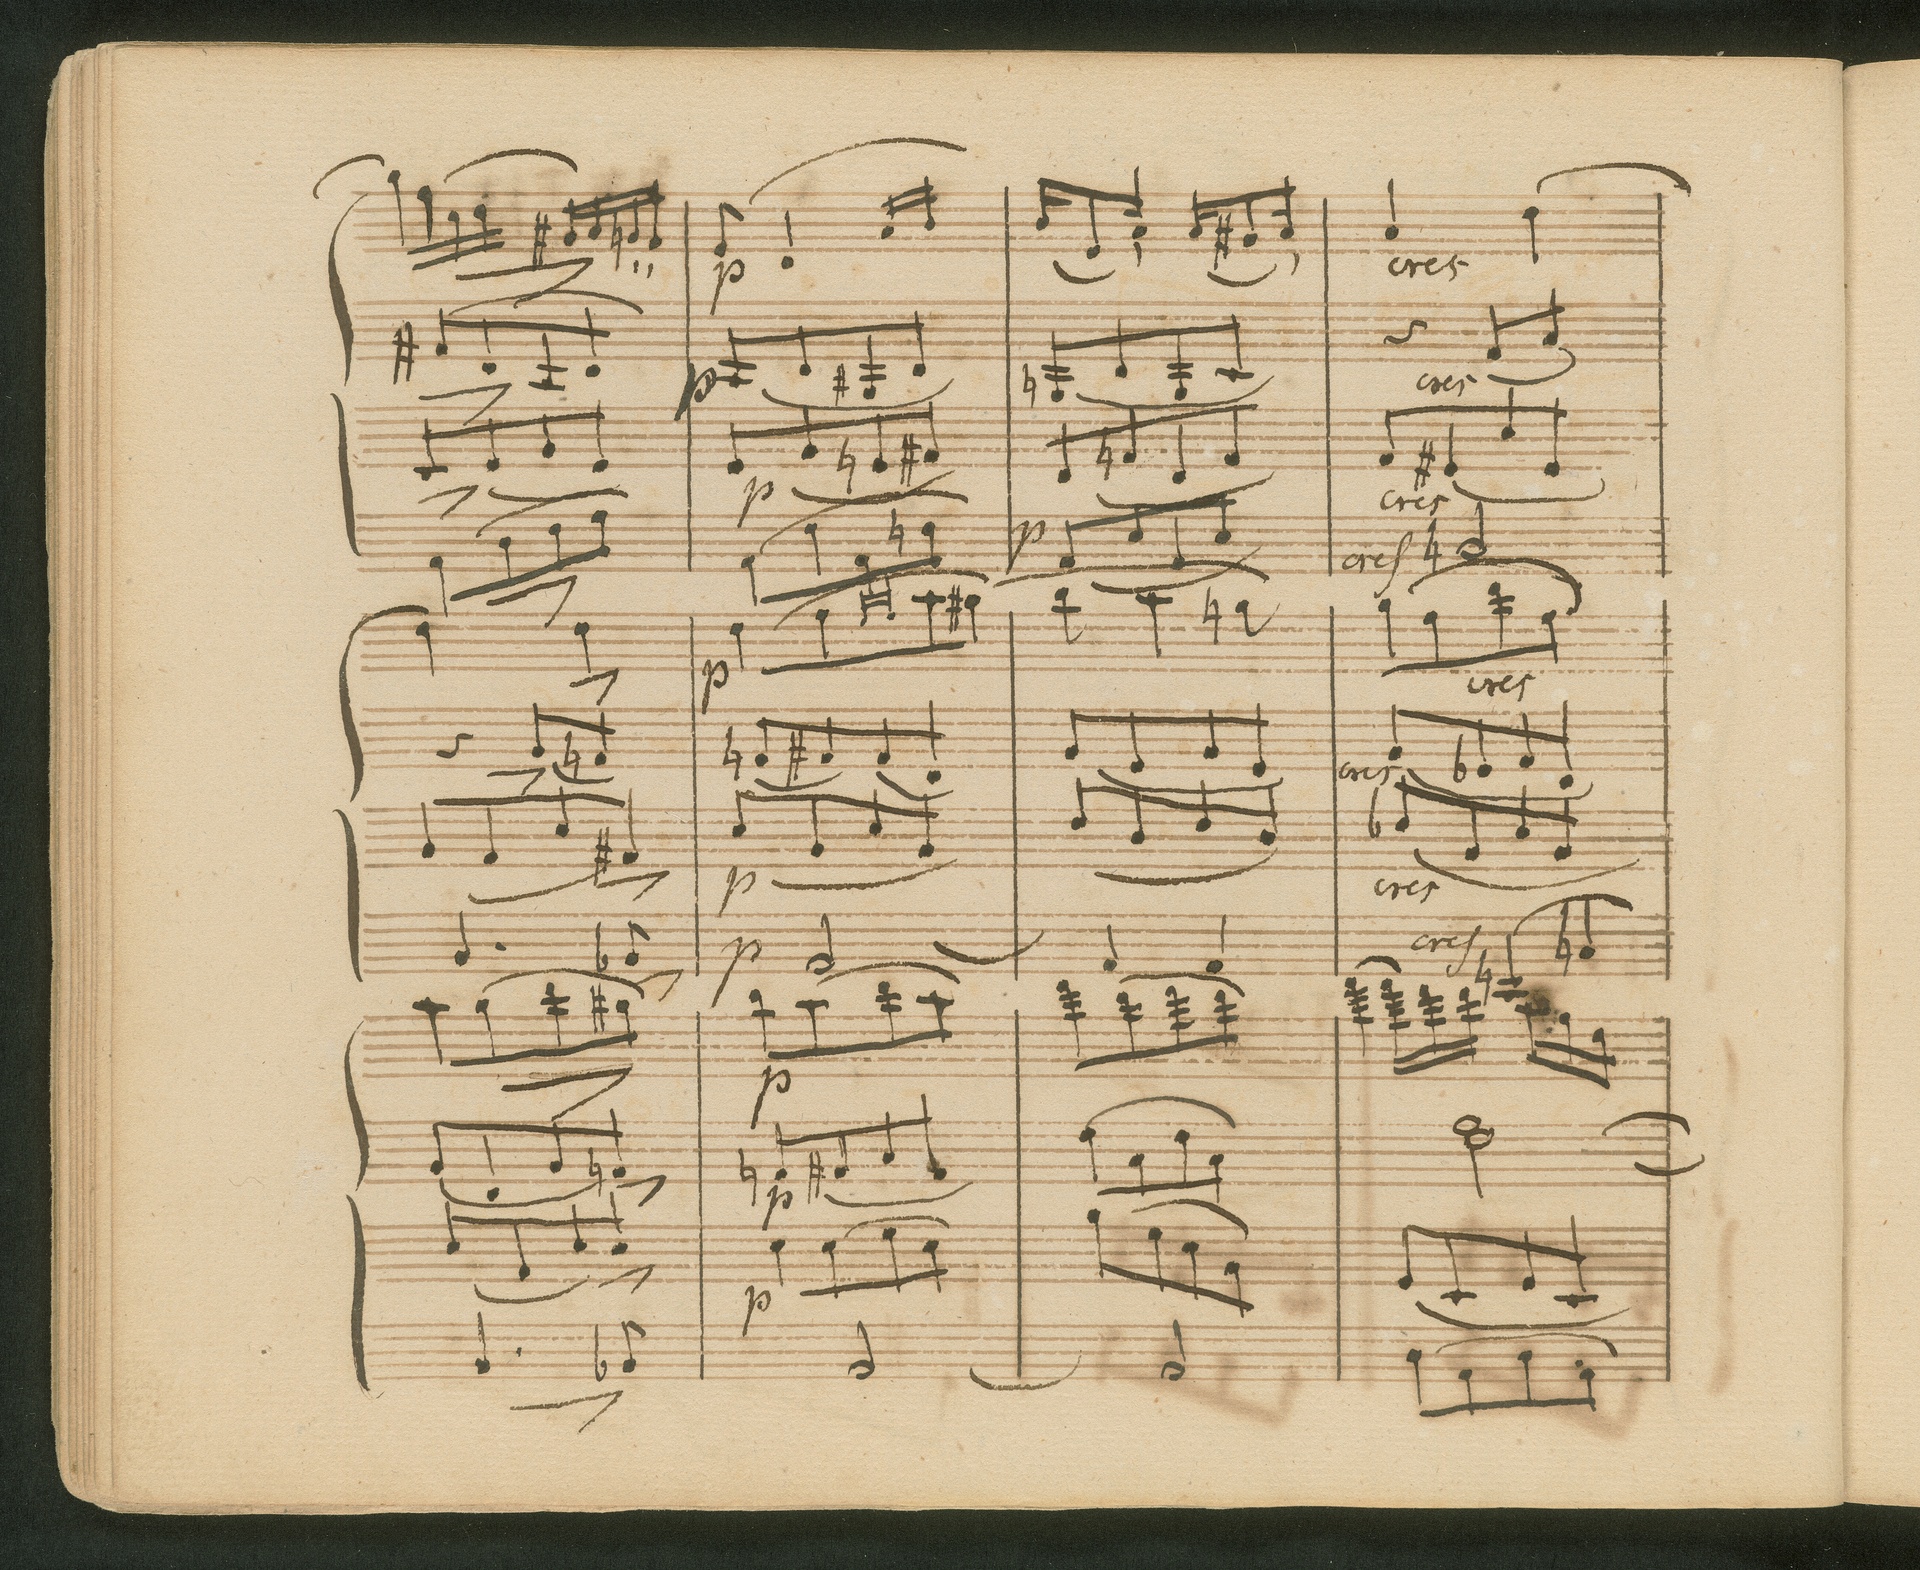 p
cres
p
cres
p
cres
p
cres
p
cres
cres
p
cres
p
cres
p
p
p